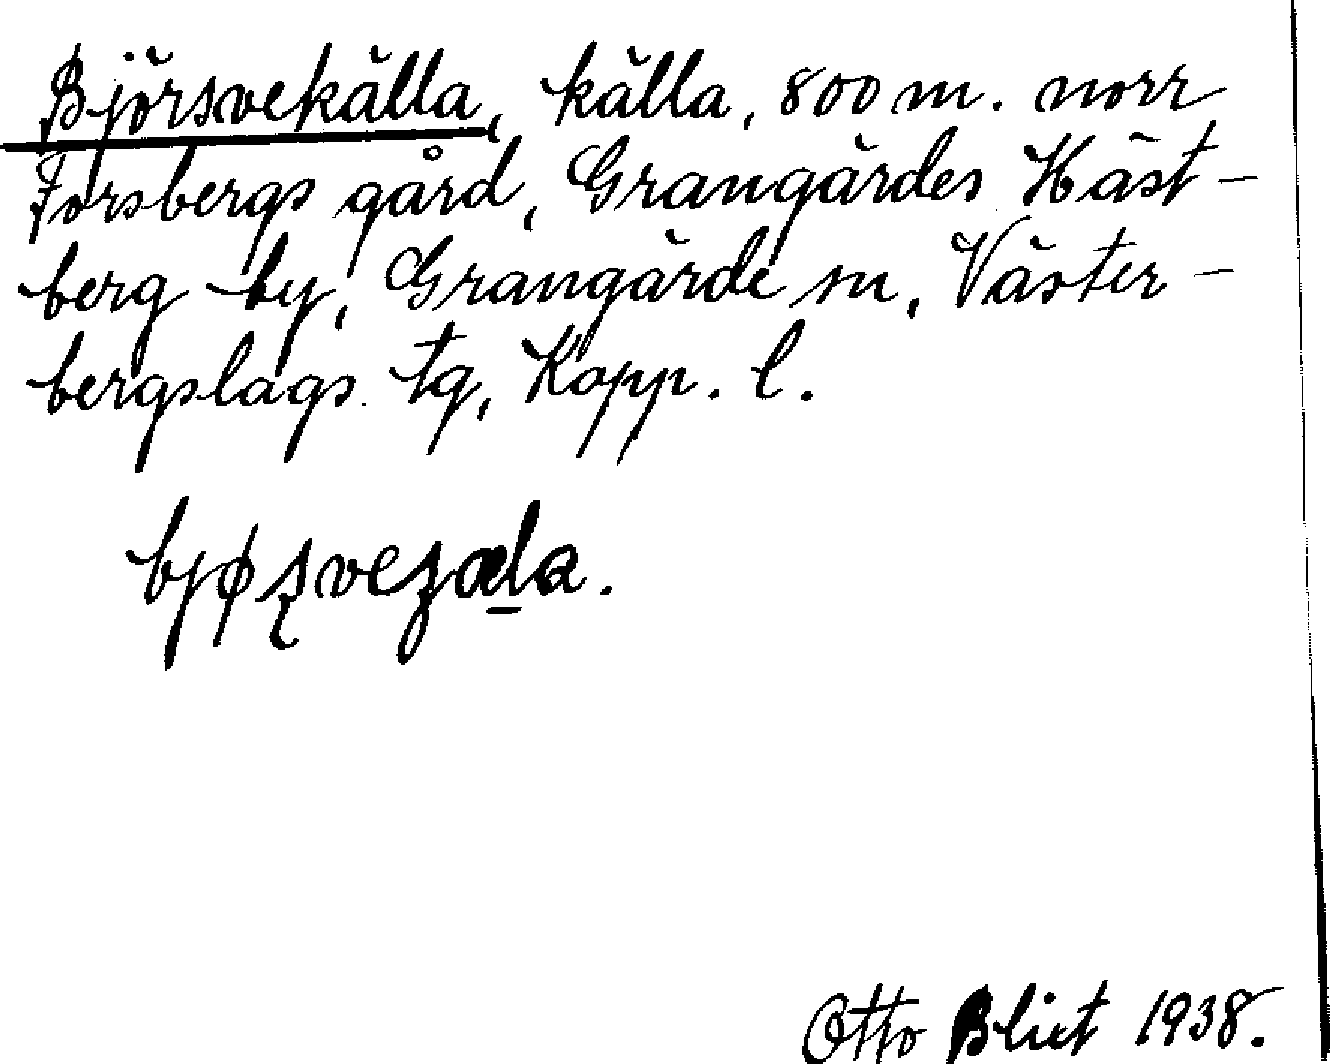 Björsvekälla, källa, 800 m. norr
Forsbergs gård, Grangärdes Häst-
berg by, Grangärde sn, Väster-
bergslags tg, Kopp. l.
Otto Blixt 1938.